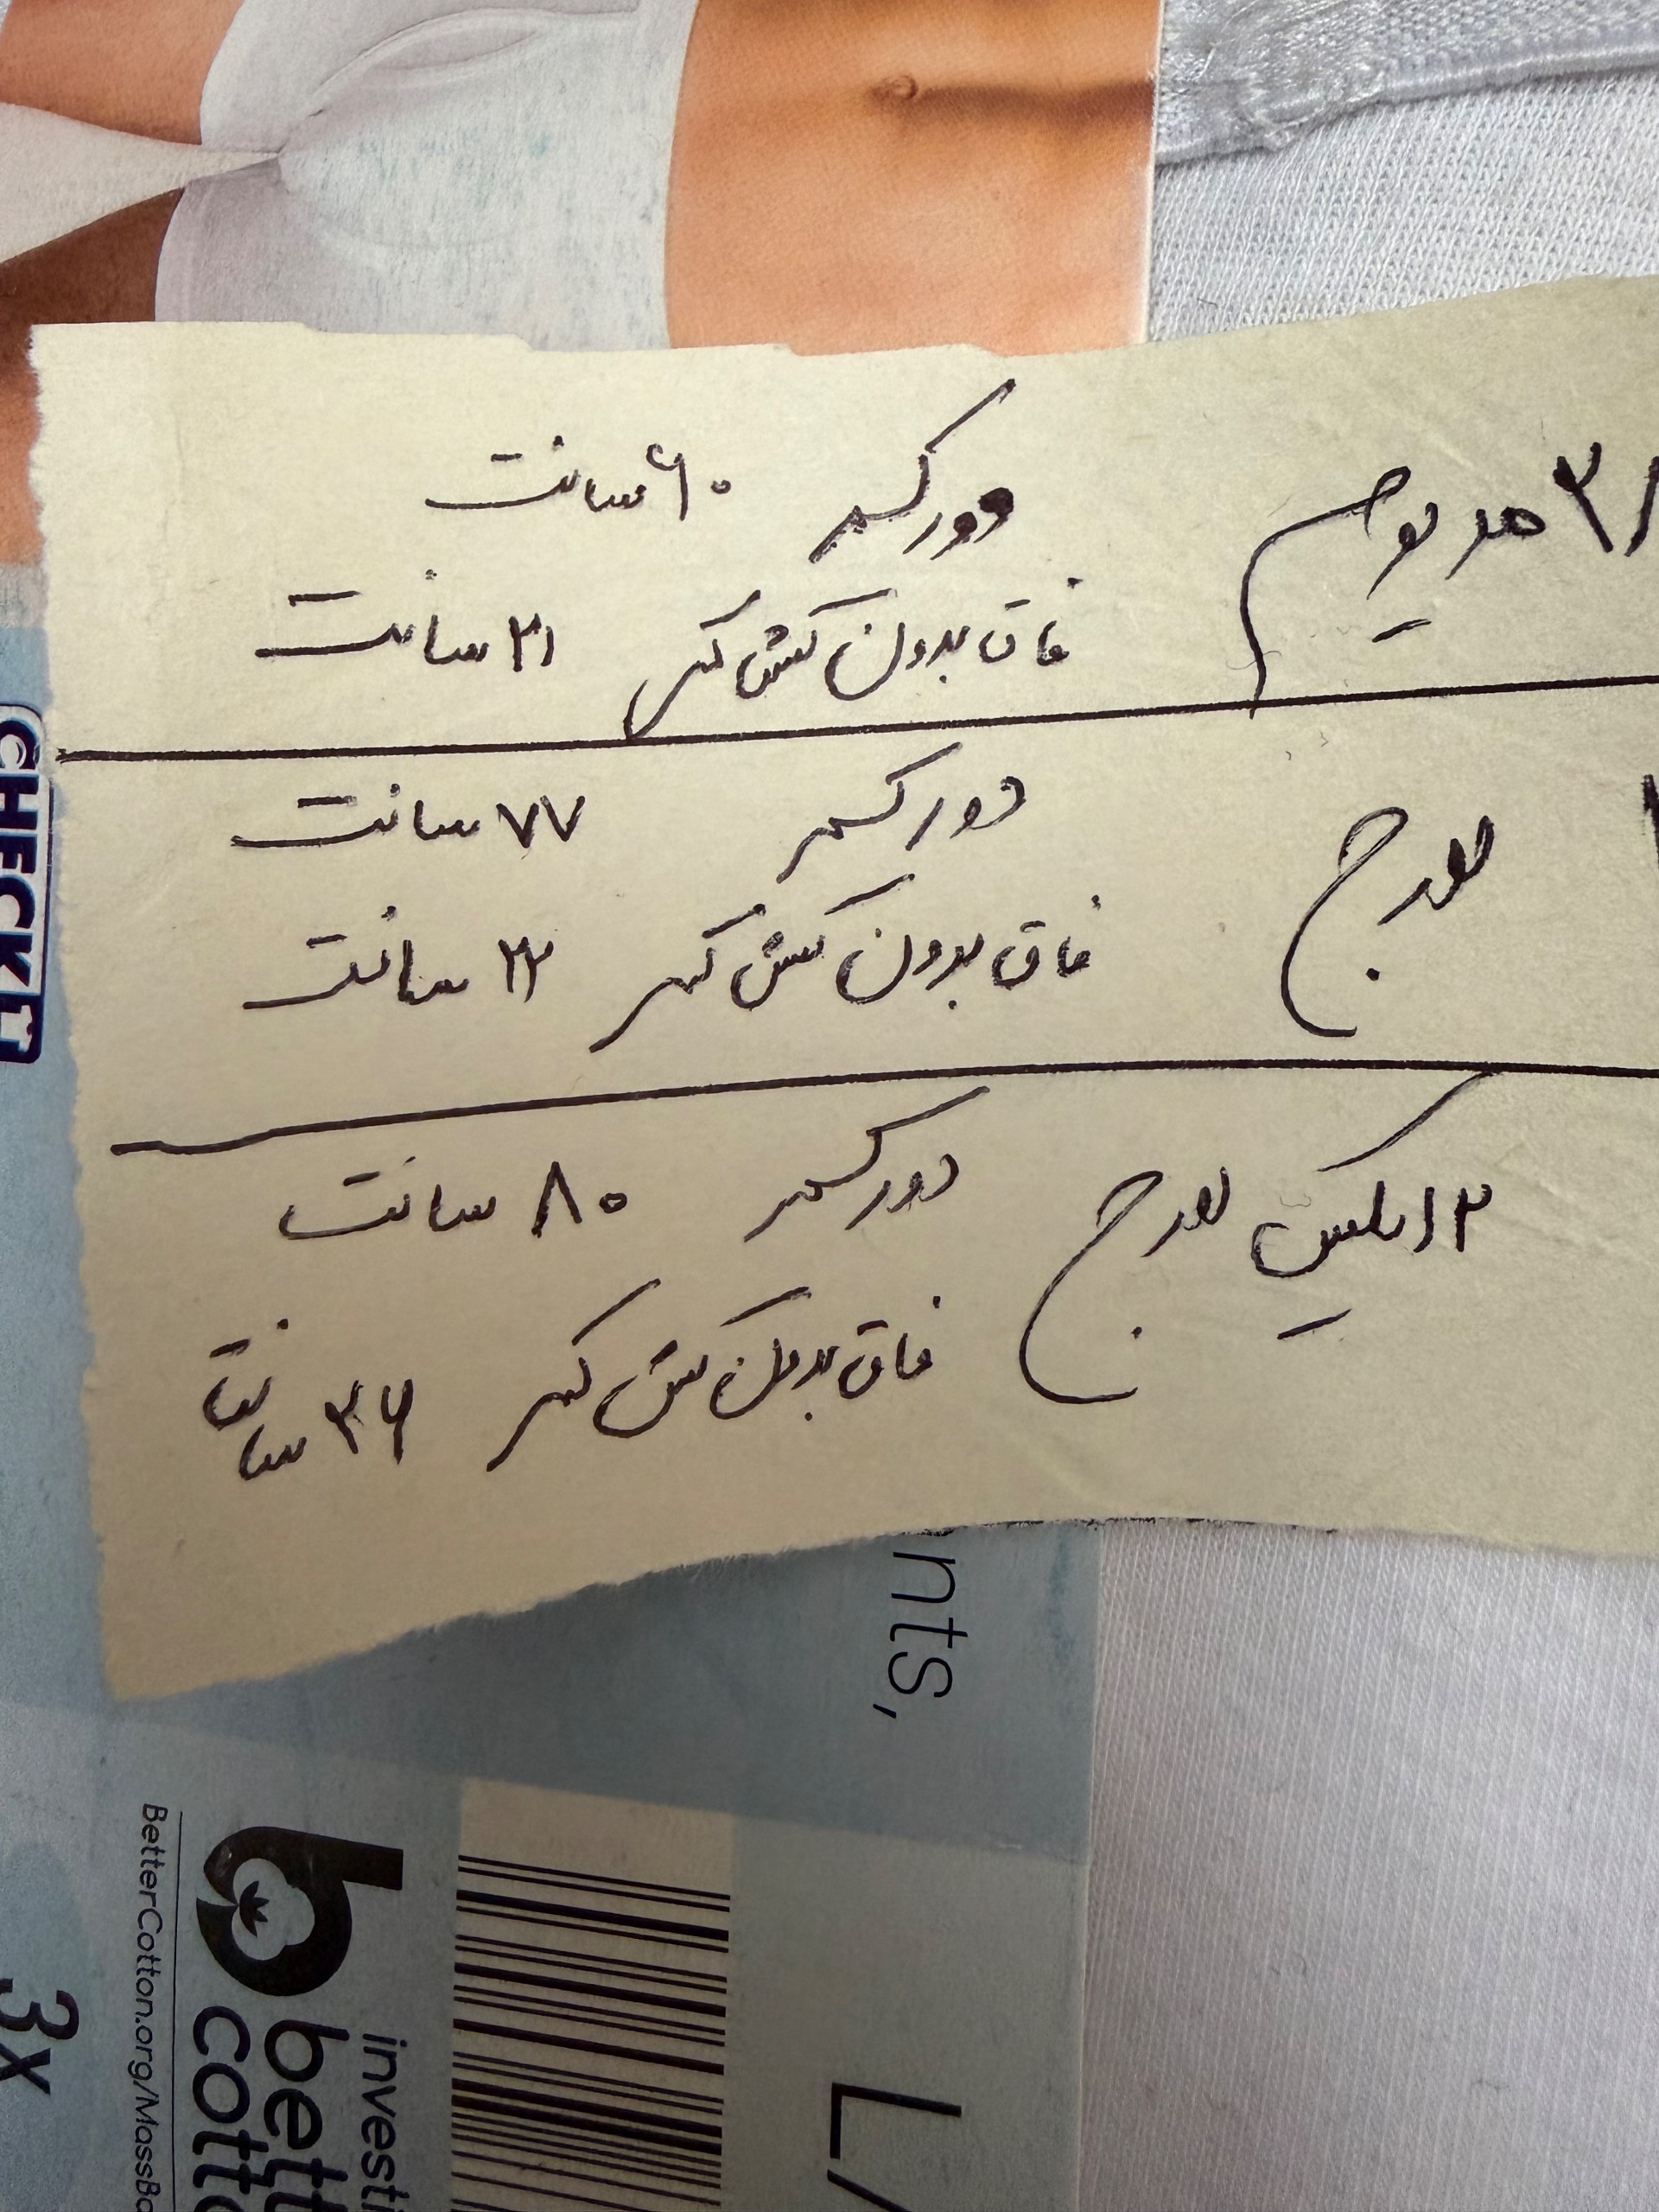 مدیوم دور کمر ۶۰ سانت
فاق بدون کش کمر ۲۱ سانت
لارج دور کمر ۷۷ سانت
فاق بدون کش کمر سانت
ایکس لارج دور کمر ۸۰ سانت
فاق بدون کش کمر سانت
CHECK
nts,
BetterCotton.org/MassBa
bett
cotto
investi
3x
L/